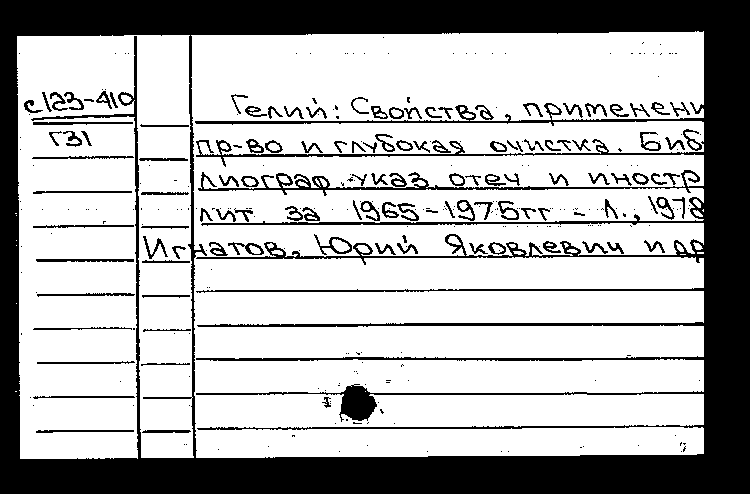 с123-410
Г31
Гелий: Свойства, применени
пр-во и глубокая очистка. Биб
лиограф. указ. отеч и иностр
лит. за 1965-1975гг - Л., 1978
Игнатов, Юрий Яковлевич и др